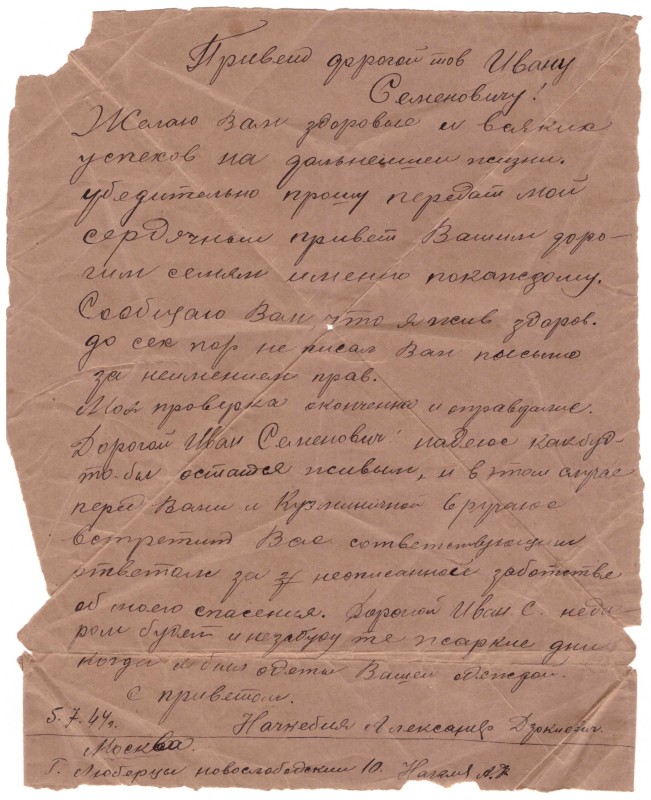 Привет дорогой тов Ивану
Семеновичу!
Желаю Вам здоровье и всяких
успехов на дальнешшеи жизни.
убедительно прошу передат мой
сердячным привет Вашим доро-
гим семям именно покаждому.
Сообщаю Вам что я жив здоров.
до сех пор не писал Вам письмо
за неимением прав.
Моя проверка окончена и оправдание.
Дорогой Иван Семенович надеюс какбуд-
то-бы остатся живым, и в этом случае
перед Вами и Кузминичной вручаюс
встретит Вас сответствующим
ответом за неописанной заботстве
об моего спасения. Дорогой Иван С. неда-
ром будем и незабуду те жаркие дни
когда я был одеты Вашей одеждой.
с приветом.
5.7.44г. Начкебия Александр
Москва.
г. Люберцы новослободский 10. А.